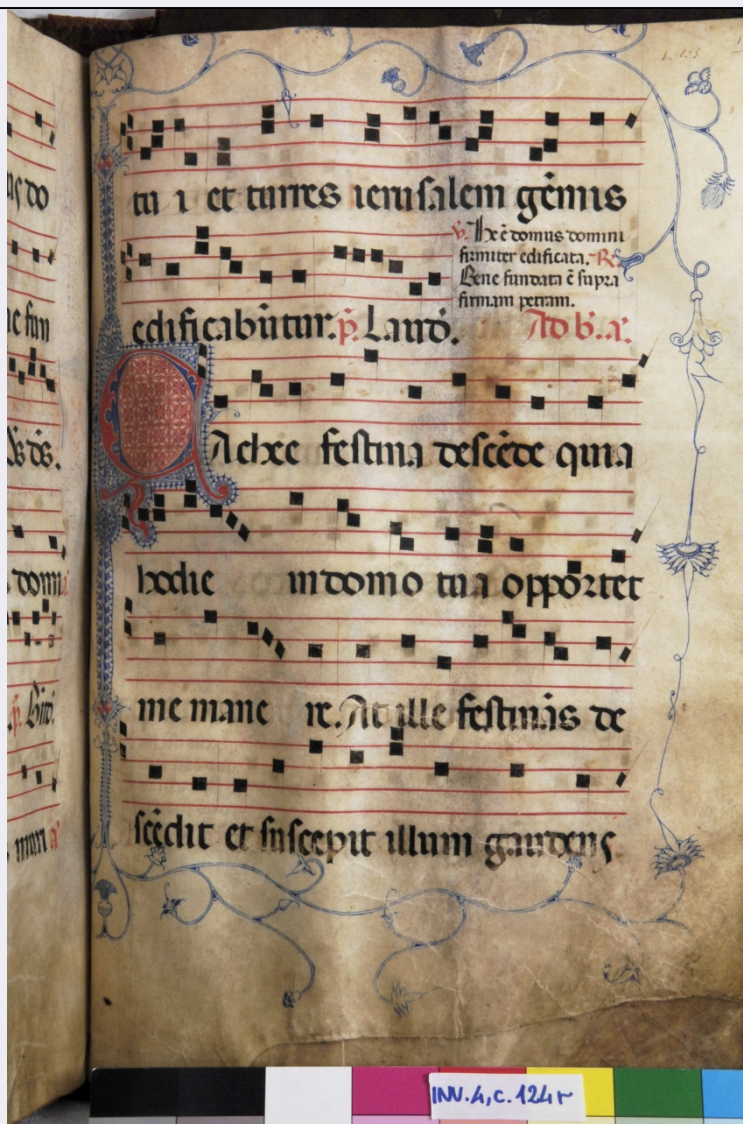 tu i et turres ierusalem gemis
℣. Hec ē domus domini
firmiter edificata. ℟.
Bene fundata ē supra
firmam petram.
edificabūtur. p̄. Laud̄. Ad b̄. a̅.
Zachee festina descēde quia
hodie in domo tua opportet
me mane re. At ille festināˢ de
scēdit et suscepit illum gaudens
ne fun
dom
mari a̅
INV.4, c. 124r